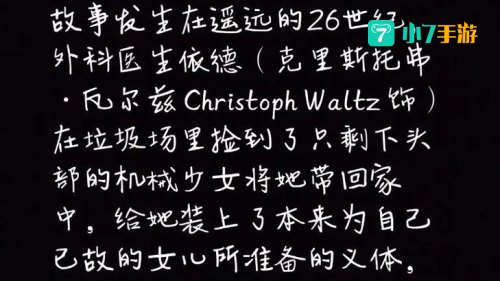 故事发生在遥远的26世纪
小7手游
外科医生依德（克里斯托弗
·瓦尔兹Christoph Waltz 饰）
在垃圾场里捡到了只剩下头
部的机械少女将她带回家
中，给她装上了本来为自己
已故的女儿所准备的义体，